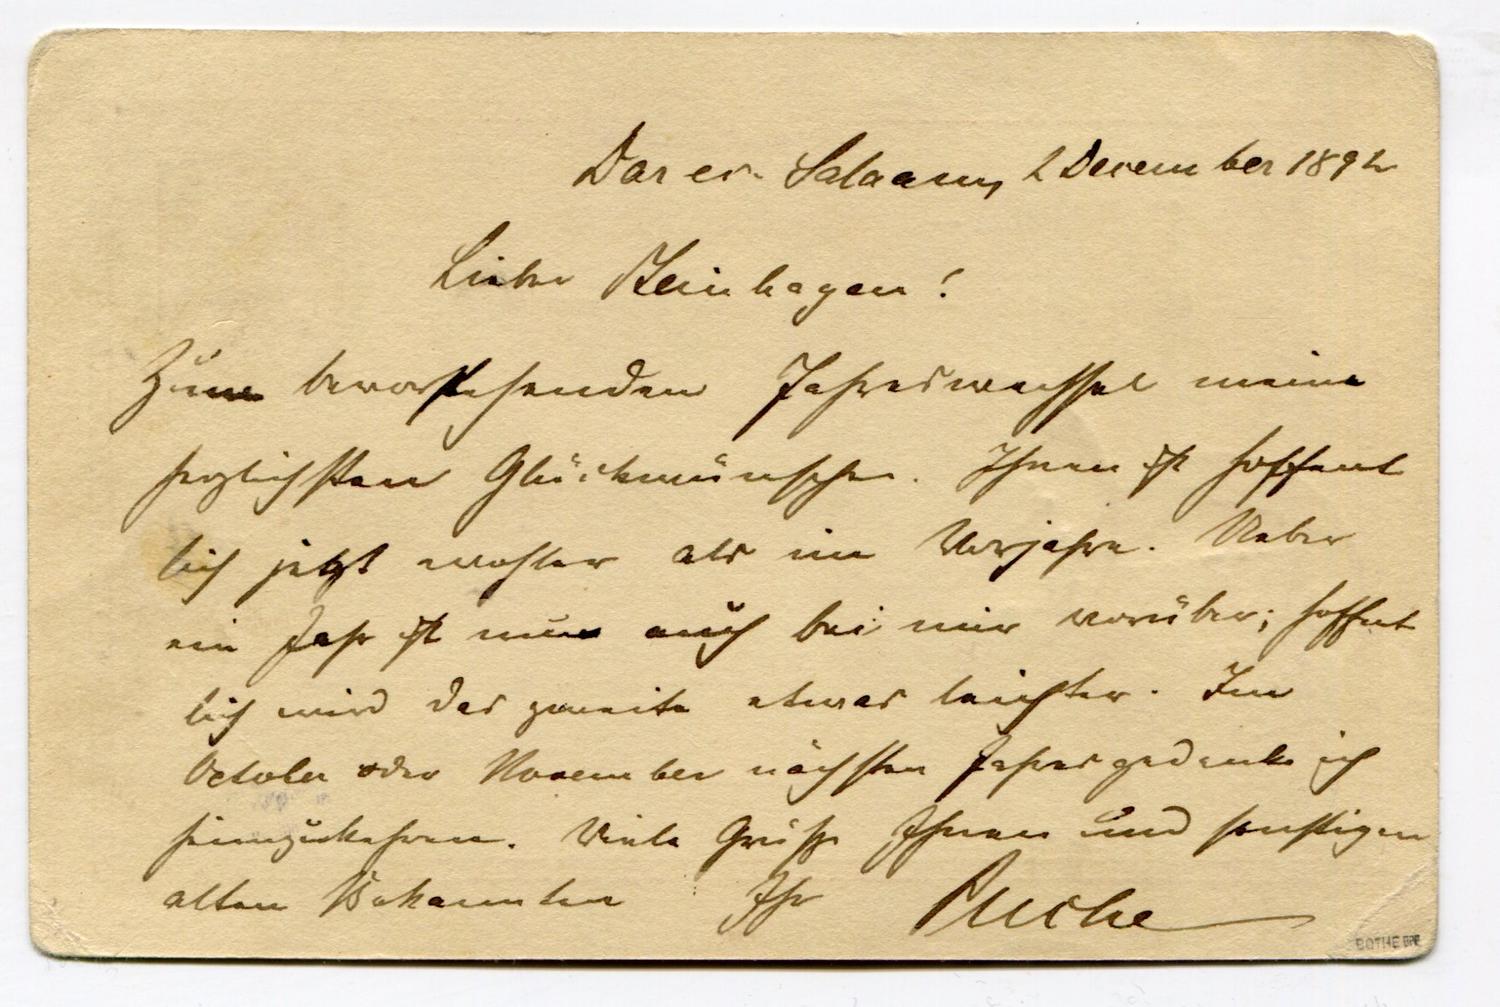 Dar es-Salaam, 2 December 1892
Lieber Steinhagen!
Zum bevorstehenden Jahreswechsel meine
herzlichsten Glückwünsche. Ihnen ist hoffent
lich jetzt wohler als im Vorjahre. Ueber
ein Jahr ist nun auch bei mir vorüber; hoffent
lich wird das zweite etwas leichter. Im
October oder November nächsten Jahres gedenke ich
heimzukehren. Viele Grüße Ihnen und sonstigen
alten Bekannten Ihr
BOTHE BPP